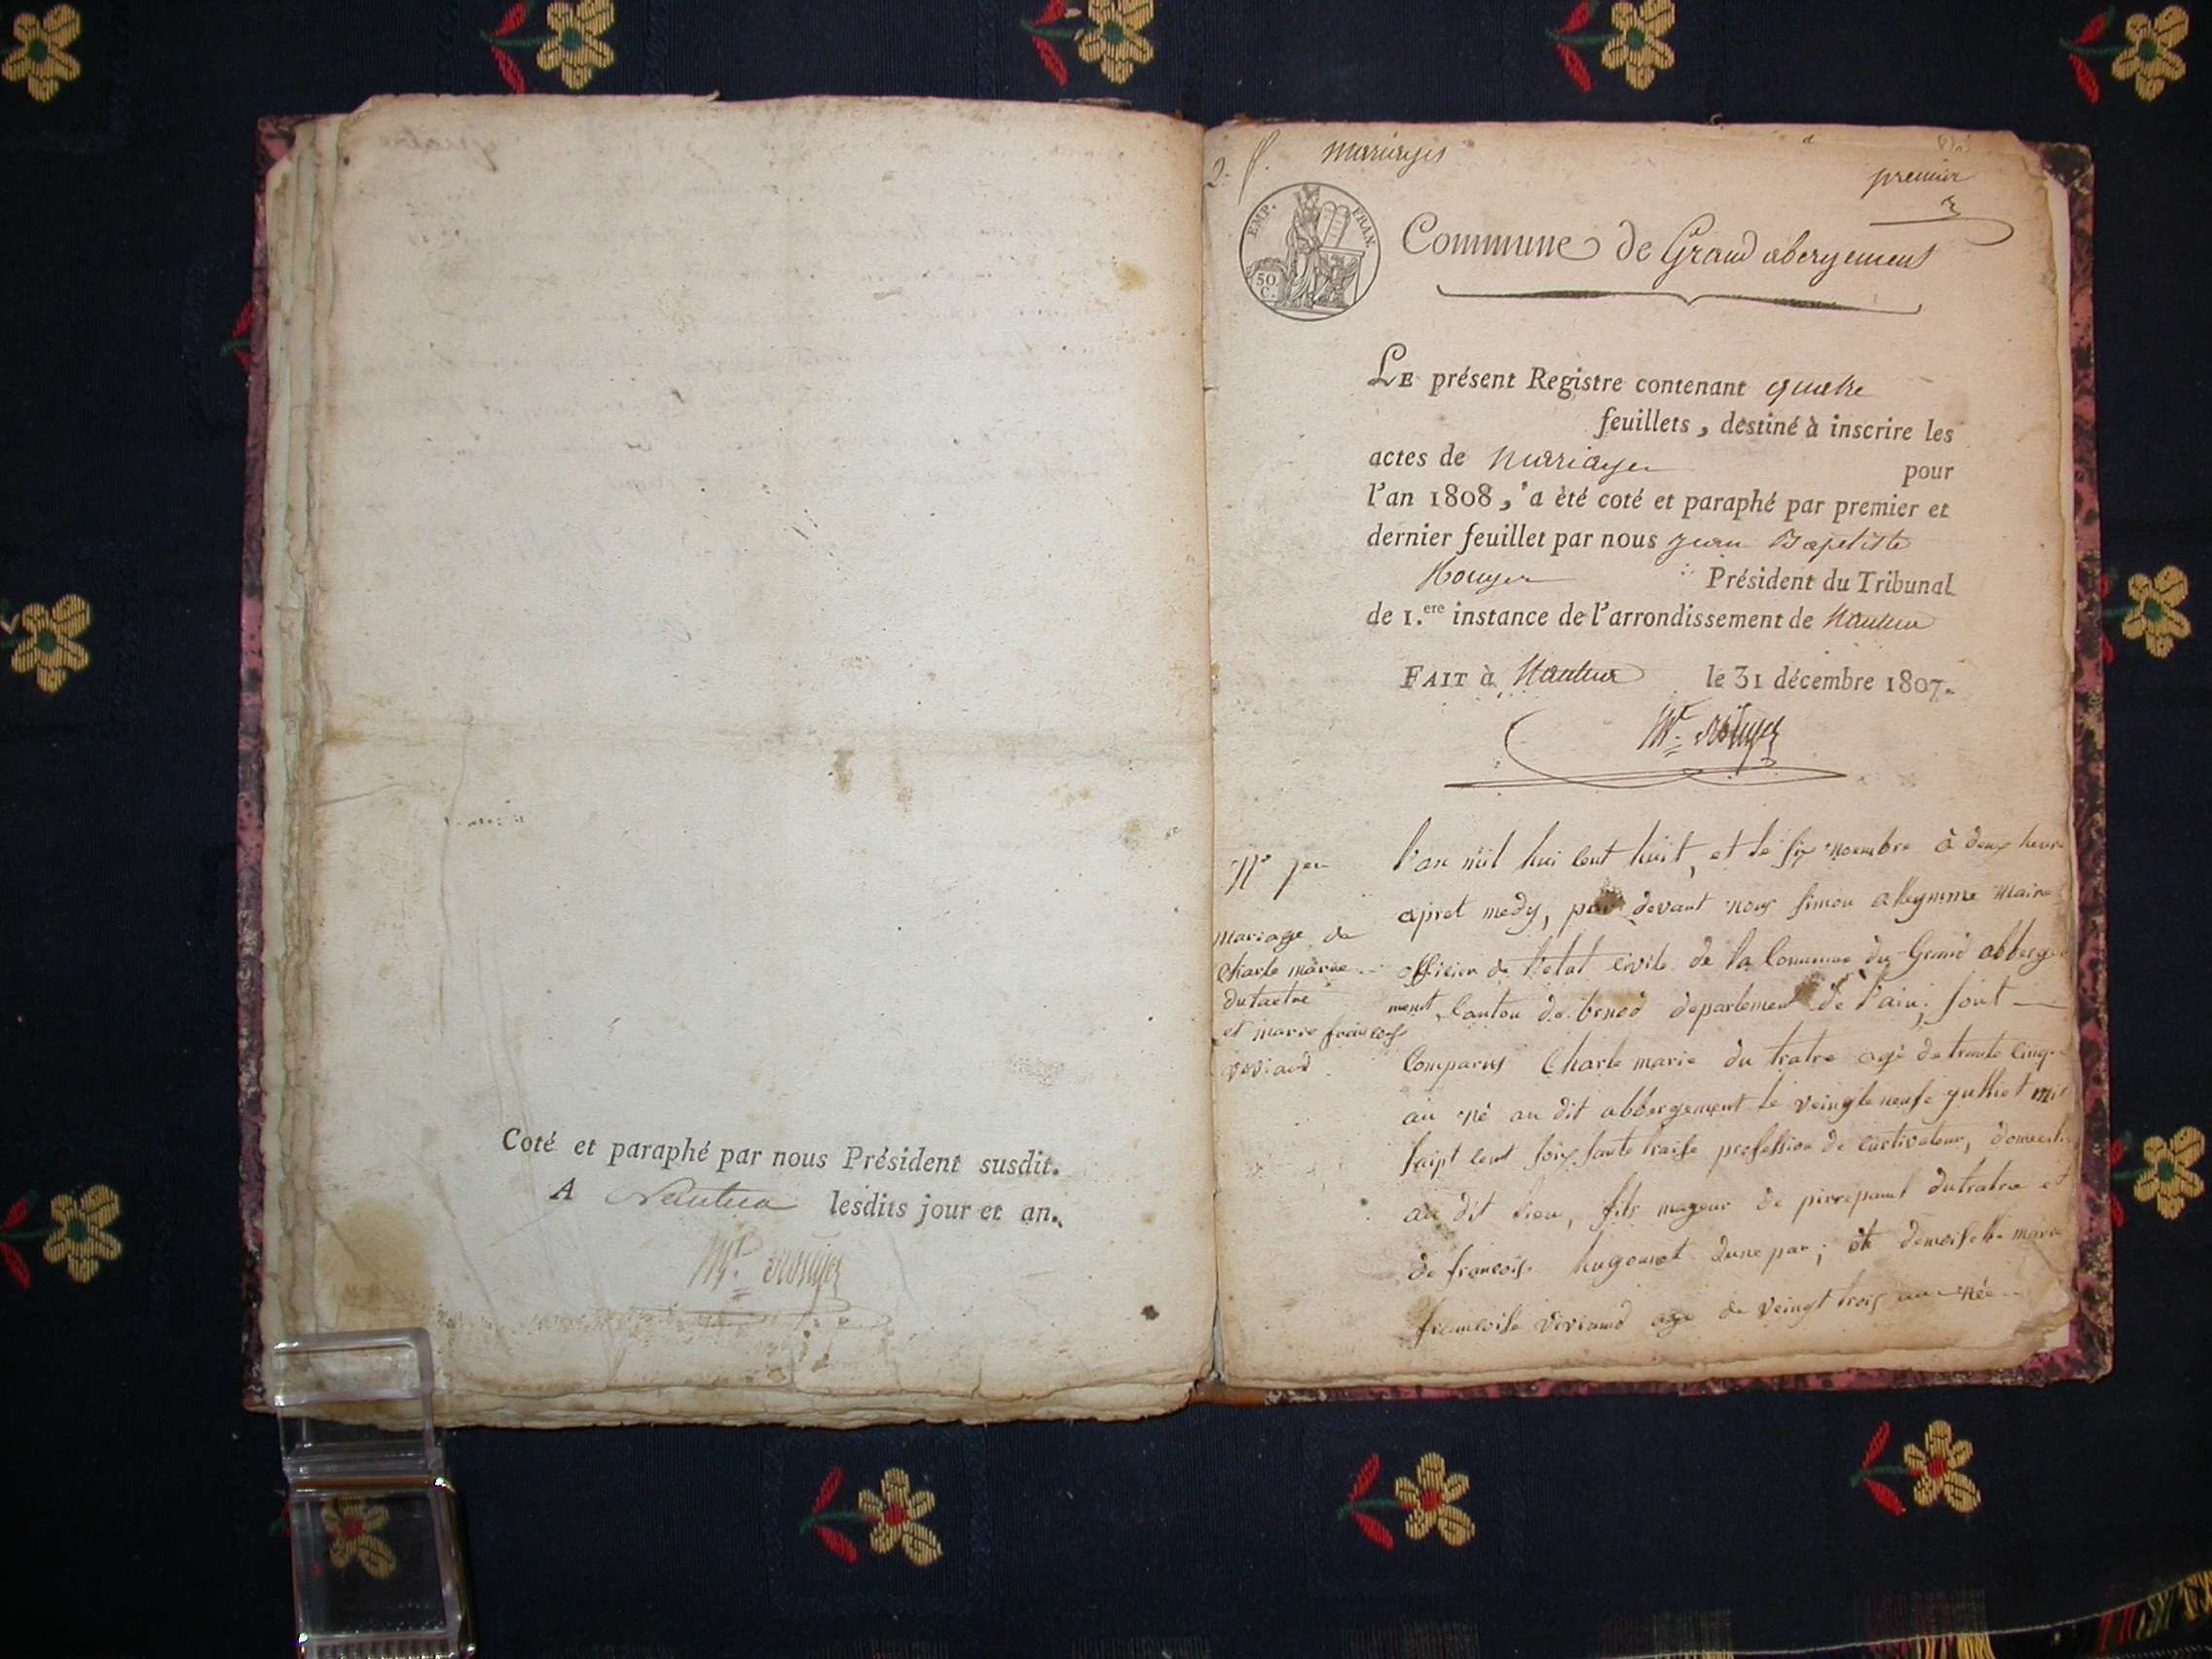 Coté et paraphé par nous Président susdit.
A Nantua lesdits jour et an.
mariages
premier
EMP. FRAN.
50 C.
Commune de Grand abergement
LE présent Registre contenant quatre
feuillets, destiné à inscrire les
actes de Mariages pour
l'an 1808, a été coté et paraphé par premier et
dernier feuillet par nous Jean Baptiste
Rouyer Président du Tribunal
de 1.ere instance de l'arrondissement de Nantua
FAIT à Nantua le 31 décembre 1807.
N° 1er
mariage de
Charle marie
dutartre
et marie francoise
viviand
l'an mil hui cent huit, et le six novembre à deux heure
apret medy, par devant nous simon maire
officier de l'etat civile de la Commune du Grand abberge
ment, Canton de brenod departement de l'ain; sont
Comparus Charle marie du tratre agé de trante cinq
an né au dit abbergement le veingte neufe jullhet mil
saipt cent soixsante traise profession de cultivateur,
au dit lieu, fils mageur de pirre paul dutratre et
de francoise hugonnot dune par; et demoiselle marie
francoise viviand age de veingt trois an née